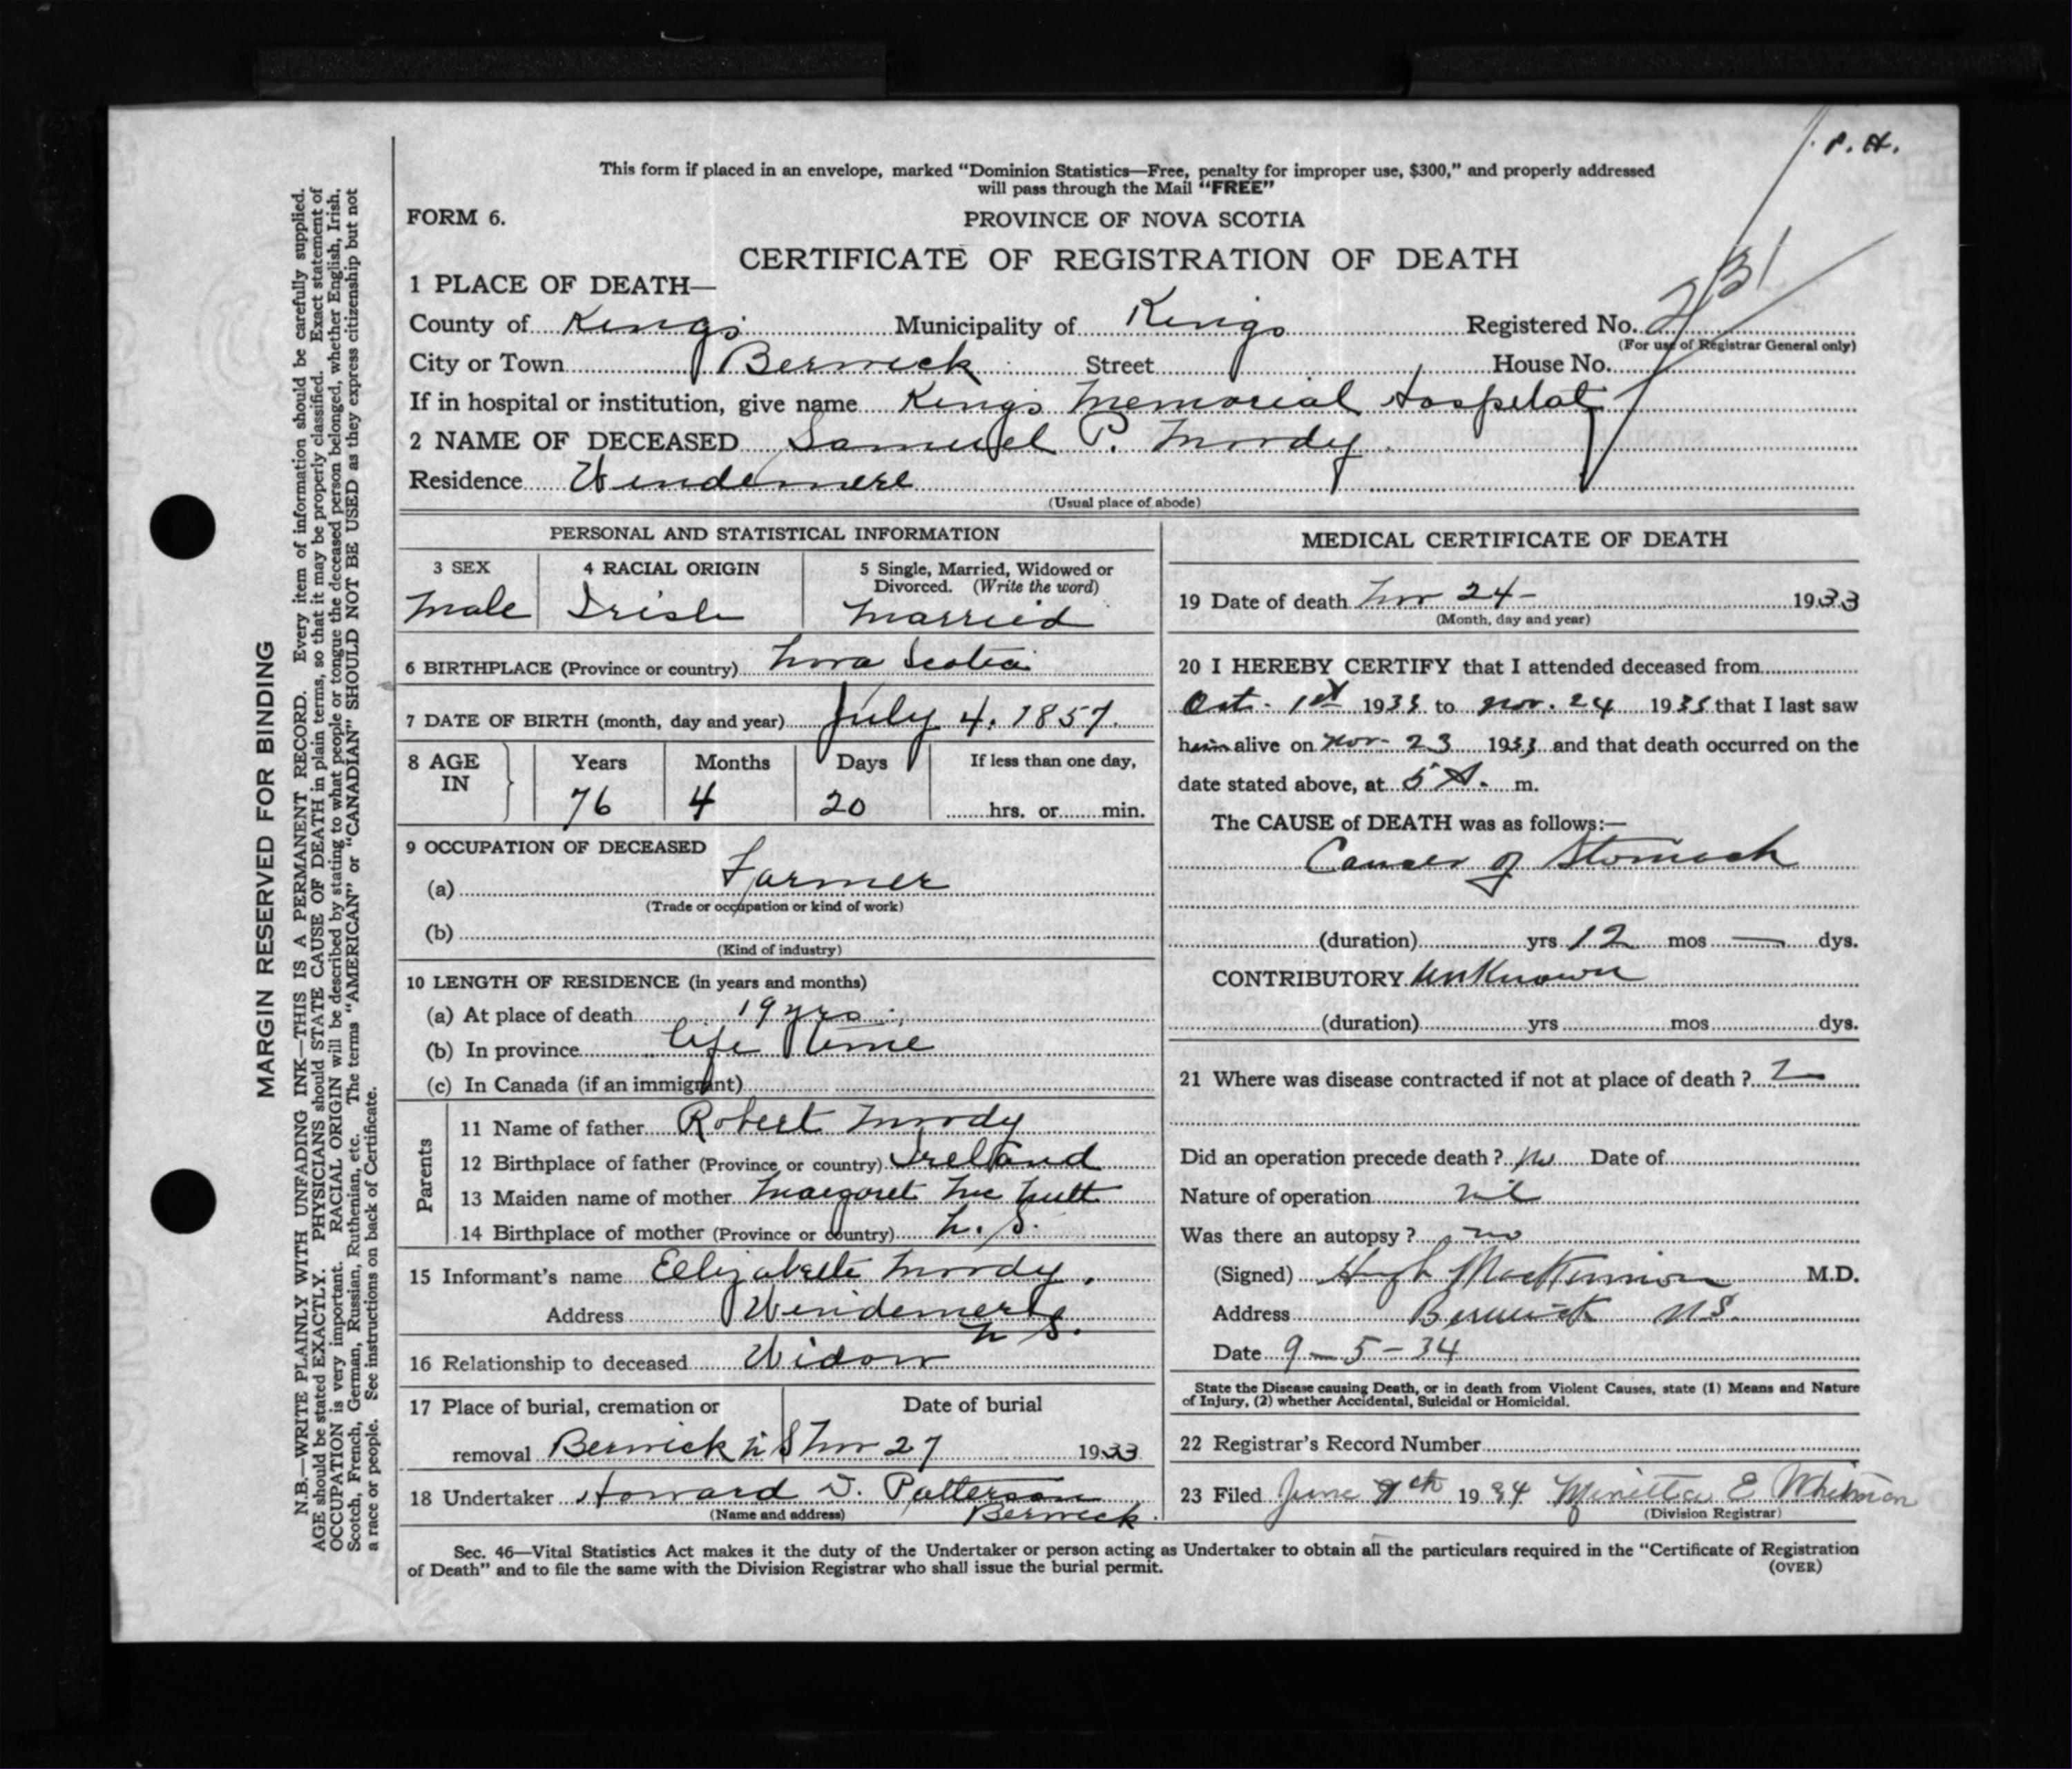 P. H.
This form if placed in an envelope, marked "Dominion Statistics—Free, penalty for improper use, $300," and properly addressed
will pass through the Mail "FREE"
FORM 6.
PROVINCE OF NOVA SCOTIA
CERTIFICATE OF REGISTRATION OF DEATH
1 PLACE OF DEATH—
County of Kings Municipality of Kings Registered No. 231
(For use of Registrar General only)
City or Town Berwick Street House No.
If in hospital or institution, give name Kings Memorial Hospital
2 NAME OF DECEASED Samuel P. Moody
Residence Windemere
(Usual place of abode)
PERSONAL AND STATISTICAL INFORMATION
3 SEX 4 RACIAL ORIGIN 5 Single, Married, Widowed or
Divorced. (Write the word)
Male Irish Married
6 BIRTHPLACE (Province or country) Nova Scotia
7 DATE OF BIRTH (month, day and year) July 4. 1857.
8 AGE IN Years Months Days If less than one day,
76 4 20 hrs. or min.
9 OCCUPATION OF DECEASED
(a) Farmer
(Trade or occupation or kind of work)
(b)
(Kind of industry)
10 LENGTH OF RESIDENCE (in years and months)
(a) At place of death 19 yrs
(b) In province life time
(c) In Canada (if an immigrant)
Parents
11 Name of father Robert Moody
12 Birthplace of father (Province or country) Ireland
13 Maiden name of mother Margaret McNutt
14 Birthplace of mother (Province or country) N. S.
15 Informant's name Elizabeth Moody.
Address Windemere
N S.
16 Relationship to deceased Widow
17 Place of burial, cremation or Date of burial
removal Berwick N S Nov 27 1933
18 Undertaker Howard D. Patterson
(Name and address) Berwick.
MEDICAL CERTIFICATE OF DEATH
19 Date of death Nov 24 - 1933
(Month, day and year)
20 I HEREBY CERTIFY that I attended deceased from
Oct. 1st 1933 to Nov. 24 1933 that I last saw
him alive on Nov. 23 1933 and that death occurred on the
date stated above, at 5 A. m.
The CAUSE of DEATH was as follows:—
Cancer of Stomach
(duration) yrs 12 mos — dys.
CONTRIBUTORY Unknown
(duration) yrs mos dys.
21 Where was disease contracted if not at place of death ?
Did an operation precede death ? No Date of
Nature of operation nil
Was there an autopsy ? no
(Signed) Hugh MacKinnon M.D.
Address Berwick N.S.
Date 9 - 5 - 34
State the Disease causing Death, or in death from Violent Causes, state (1) Means and Nature
of Injury, (2) whether Accidental, Suicidal or Homicidal.
22 Registrar's Record Number
23 Filed June 9th 1934 Minetta E Whitman
(Division Registrar)
Sec. 46—Vital Statistics Act makes it the duty of the Undertaker or person acting as Undertaker to obtain all the particulars required in the "Certificate of Registration
of Death" and to file the same with the Division Registrar who shall issue the burial permit.
(OVER)
MARGIN RESERVED FOR BINDING
N.B.—WRITE PLAINLY WITH UNFADING INK—THIS IS A PERMANENT RECORD. Every item of information should be carefully supplied.
AGE should be stated EXACTLY. PHYSICIANS should STATE CAUSE OF DEATH in plain terms, so that it may be properly classified. Exact statement of
OCCUPATION is very important. RACIAL ORIGIN will be described by stating to what people or tongue the deceased person belonged, whether English, Irish,
Scotch, French, German, Russian, Ruthenian, etc. The terms "AMERICAN" or "CANADIAN" SHOULD NOT BE USED as they express citizenship but not
a race or people. See instructions on back of Certificate.